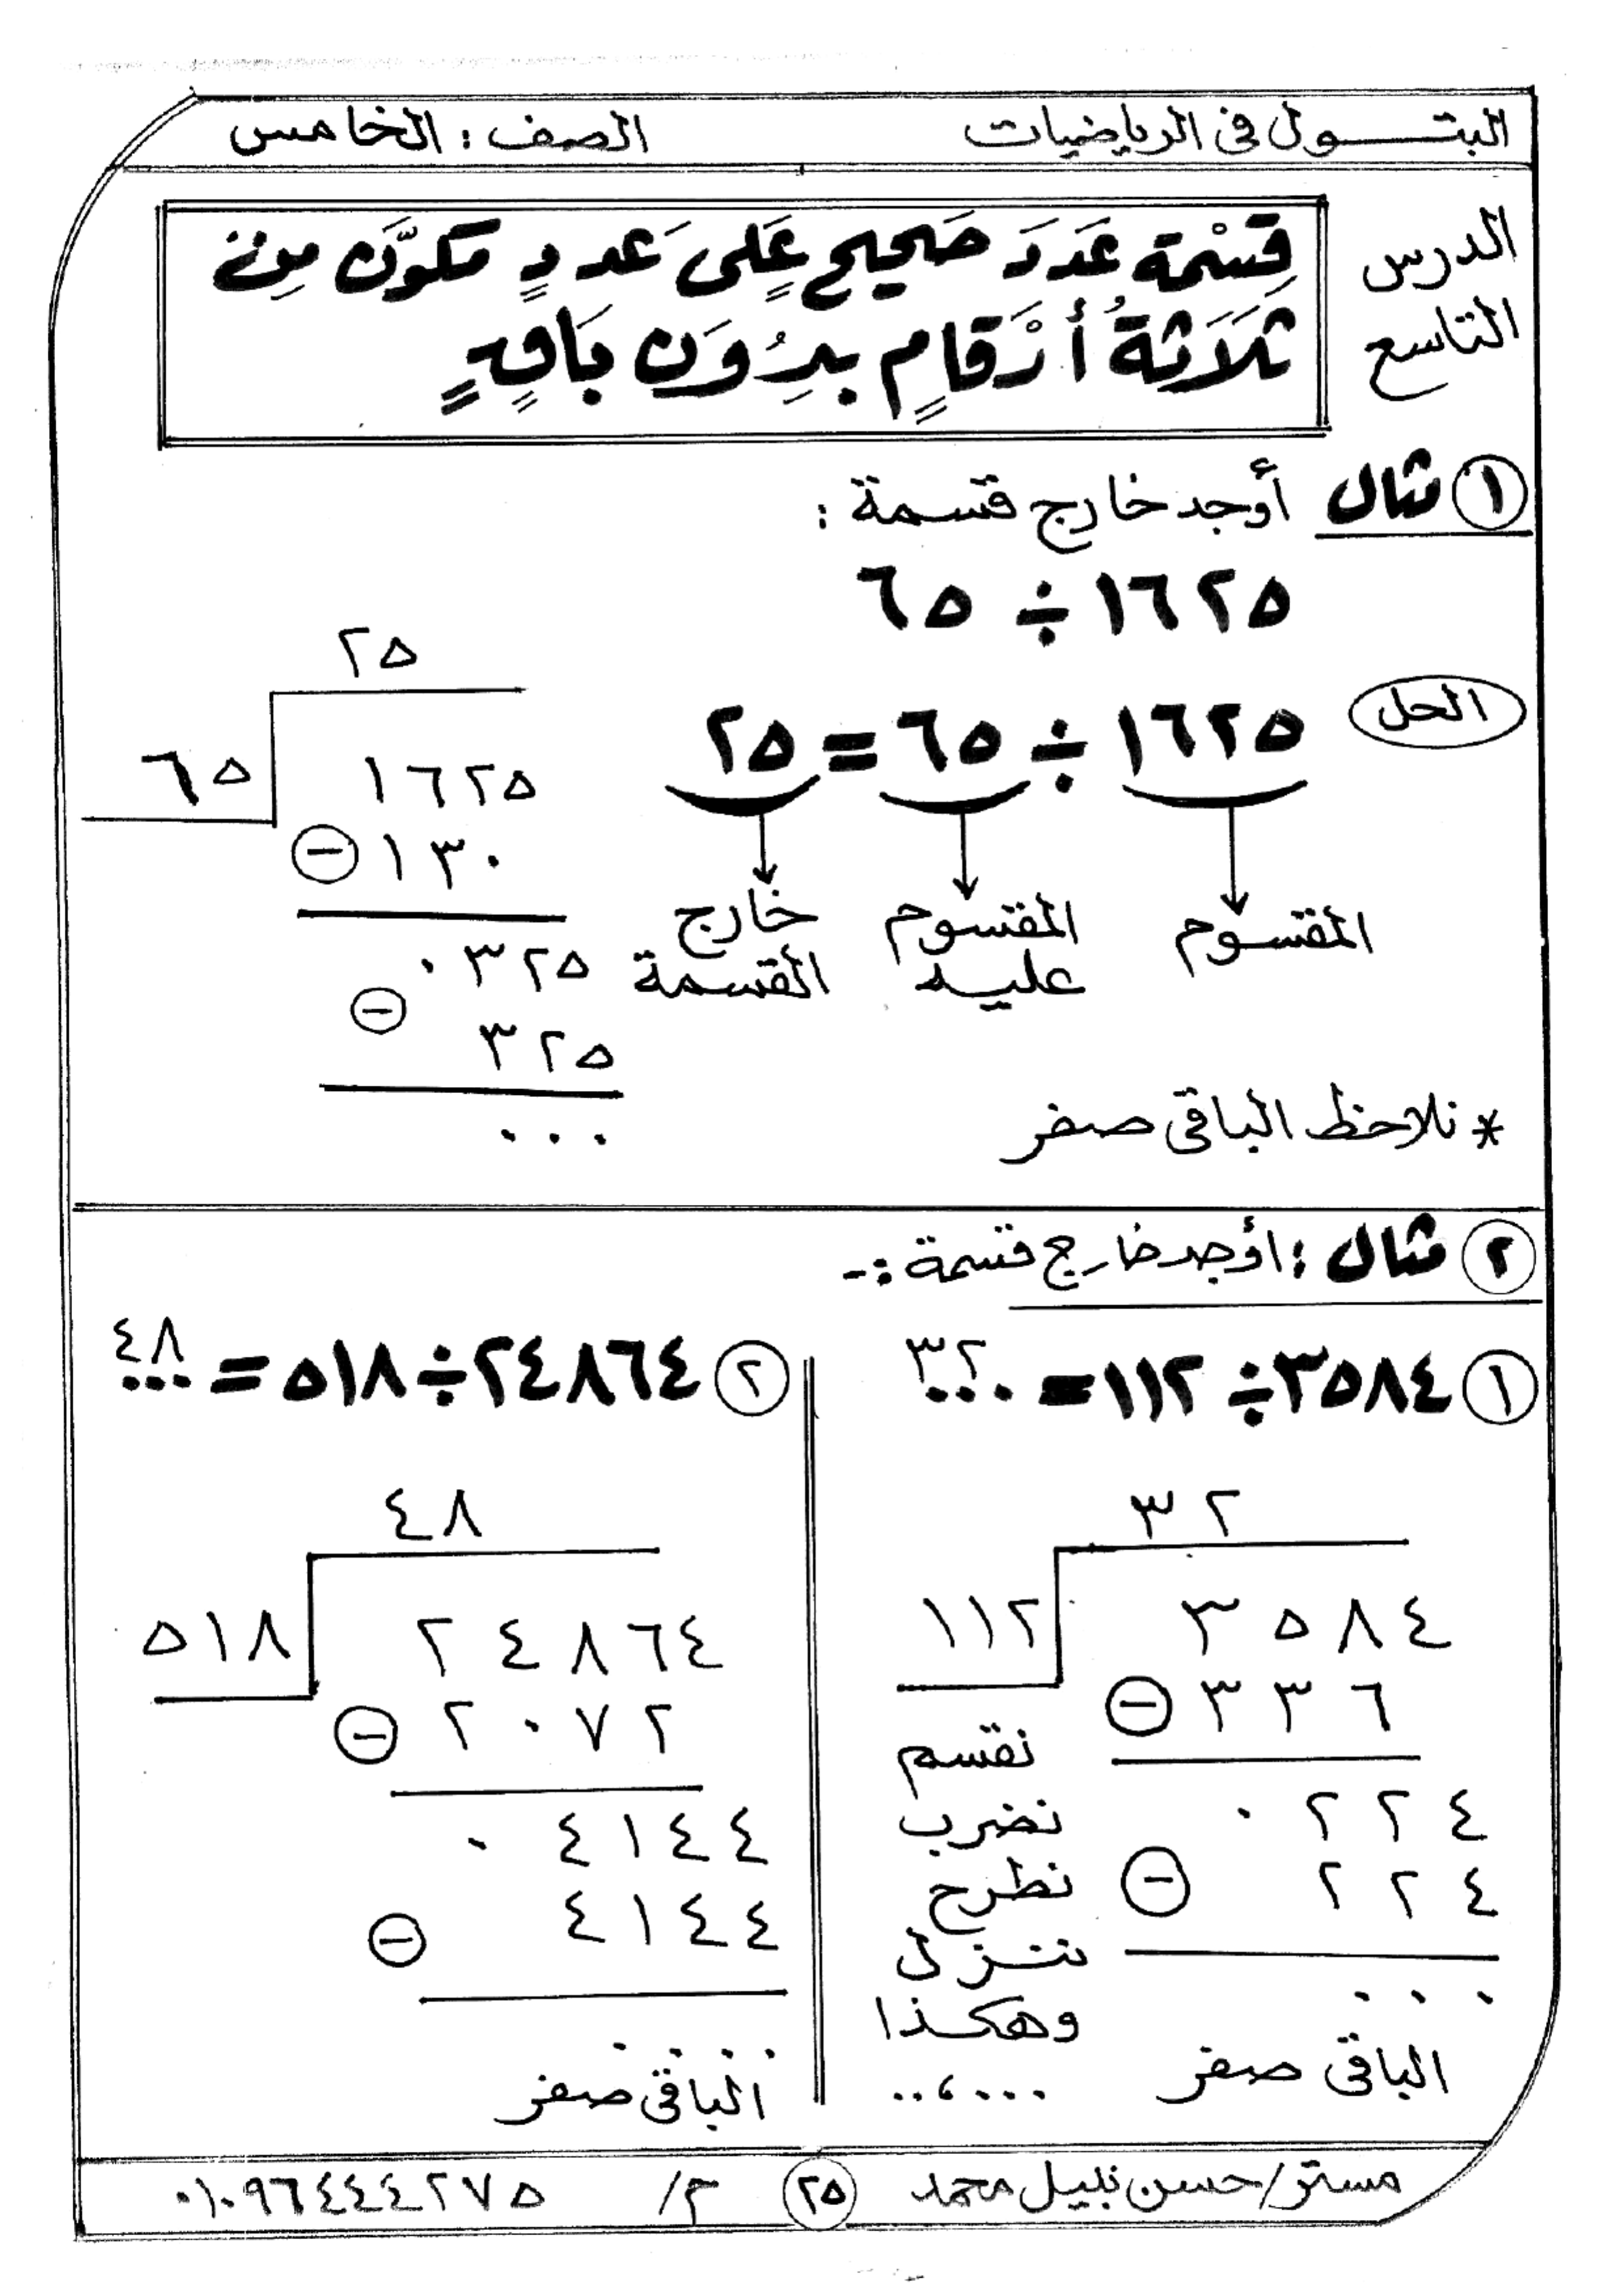 البتــول فى الرياضيات
الصف : الخامس
الدرس التاسع
قِسْمة عَدَدَ صَحيح عَلى عَددٍ مكوَّن مِن
ثَلَاثةُ أرْقامٍ بدِوُن بَاقٍ
١ مثال أوجد خارج قسمة :
١٦٢٥ ÷ ٦٥
الحل
١٦٢٥ ÷ ٦٥ = ٢٥
المقسوم
المقسوم عليه
خارج القسمة
٢٥
٦٥
١٦٢٥
- ١٣٠
٠٣٢٥
-
٣٢٥
٠٠٠
* نلاحظ الباقى صفر
٢ مثال : أوجد خارج قسمة :-
١ ٣٥٨٤ ÷ ١١٢ = ٣٢
٣٢
١١٢
٣٥٨٤
- ٣٣٦
٠٢٢٤
- ٢٢٤
٠٠٠
الباقى صفر
نقسم
نضرب
نطرح
ننزل
وهكذا
...،..
٢ ٢٤٨٦٤ ÷ ٥١٨ = ٤٨
٤٨
٥١٨
٢٤٨٦٤
- ٢٠٧٢
٠٤١٤٤
- ٤١٤٤
٠٠٠٠
الباقى صفر
مستر/حسن نبيل محمد
٢٥
م/ ٠١٠٩٦٤٤٤٢٧٥